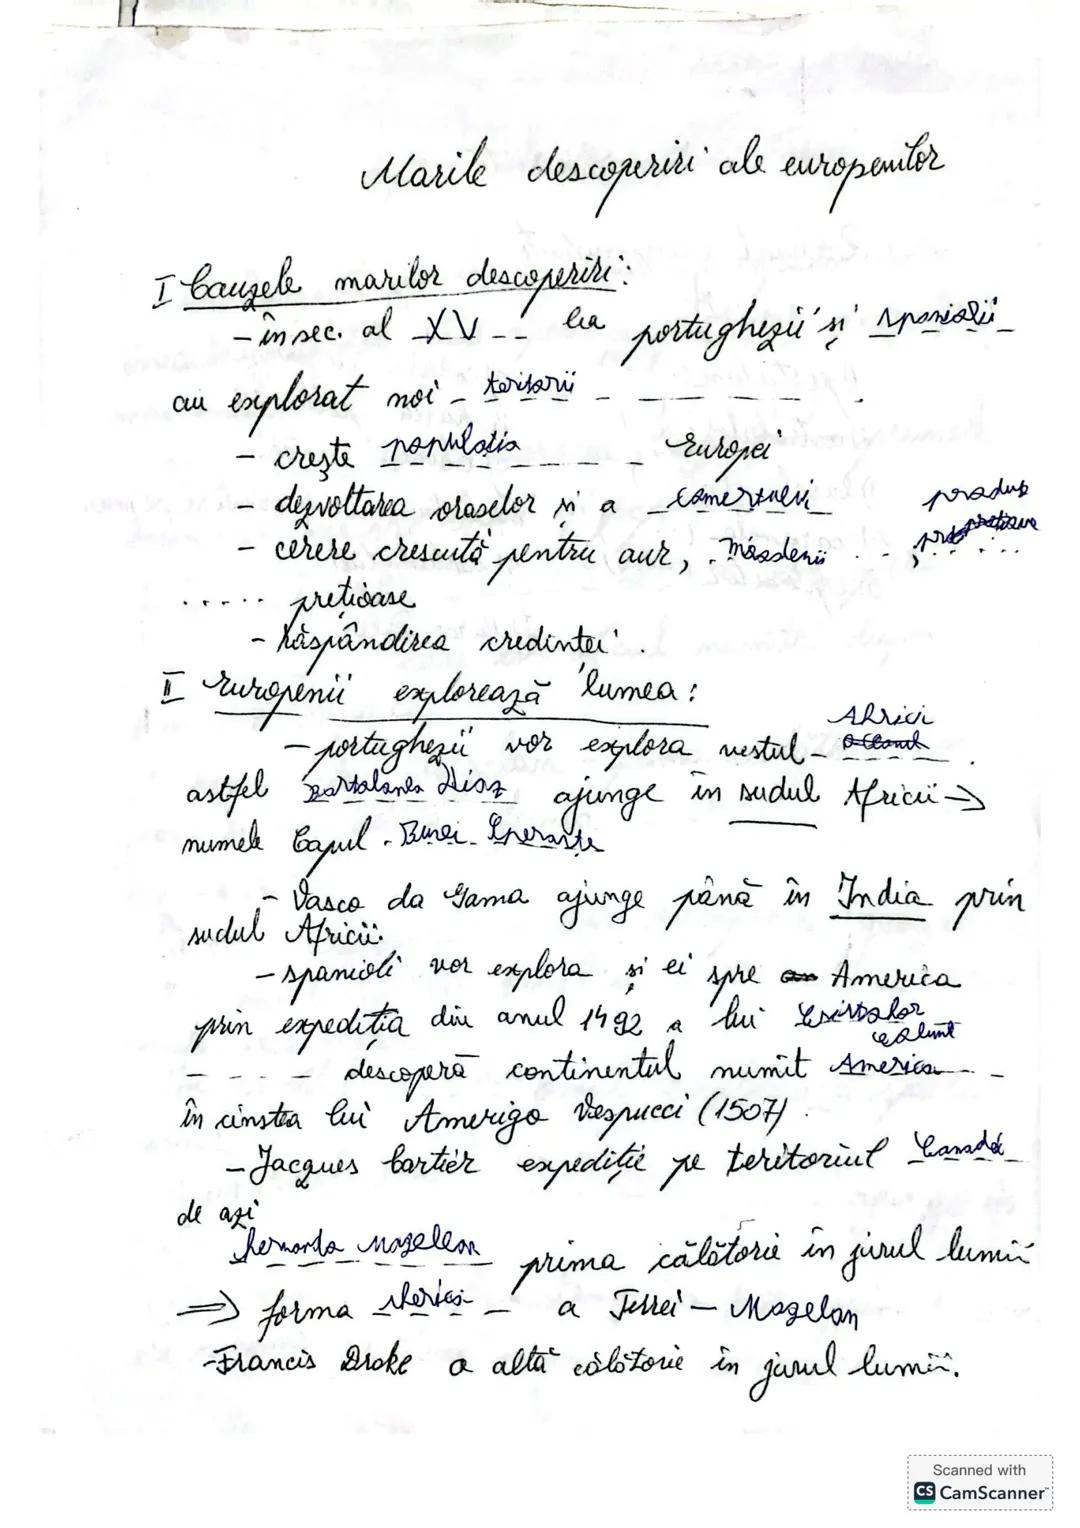 Marile descoperiri ale europenilor
I Cauzele marilor descoperiri:
- în sec. al XV -- lea portughezii și spaniolii
au explorat noi teritorii
- crește populatia Europei
- dezvoltarea oraselor și a comertului
- cerere crescută pentru aur, mirodenii produse
prețioase
..... prețioase
- Răspândirea credinței.
II Europenii explorează lumea:
- portughezii vor explora vestul Africii
astfel Bartolomeo Diaz ajunge în sudul Africii →
numele Capul Bunei Sperante
- Vasco da Gama ajunge până în India prin
sudul Africii.
- spanioli vor explora și ei spre America
prin expediția din anul 1492 a lui Cristofor
Columb
descoperă continentul numit America
în cinstea lui Amerigo Vespucci (1507).
- Jacques Cartier expediție pe teritoriul Canadei
de azi
Fernando Magellan prima călătorie în jurul lumii
⇒ forma sferica a Terrei - Magelan
- Francis Drake a altă călătorie în jurul lumii.
Scanned with
CS CamScanner